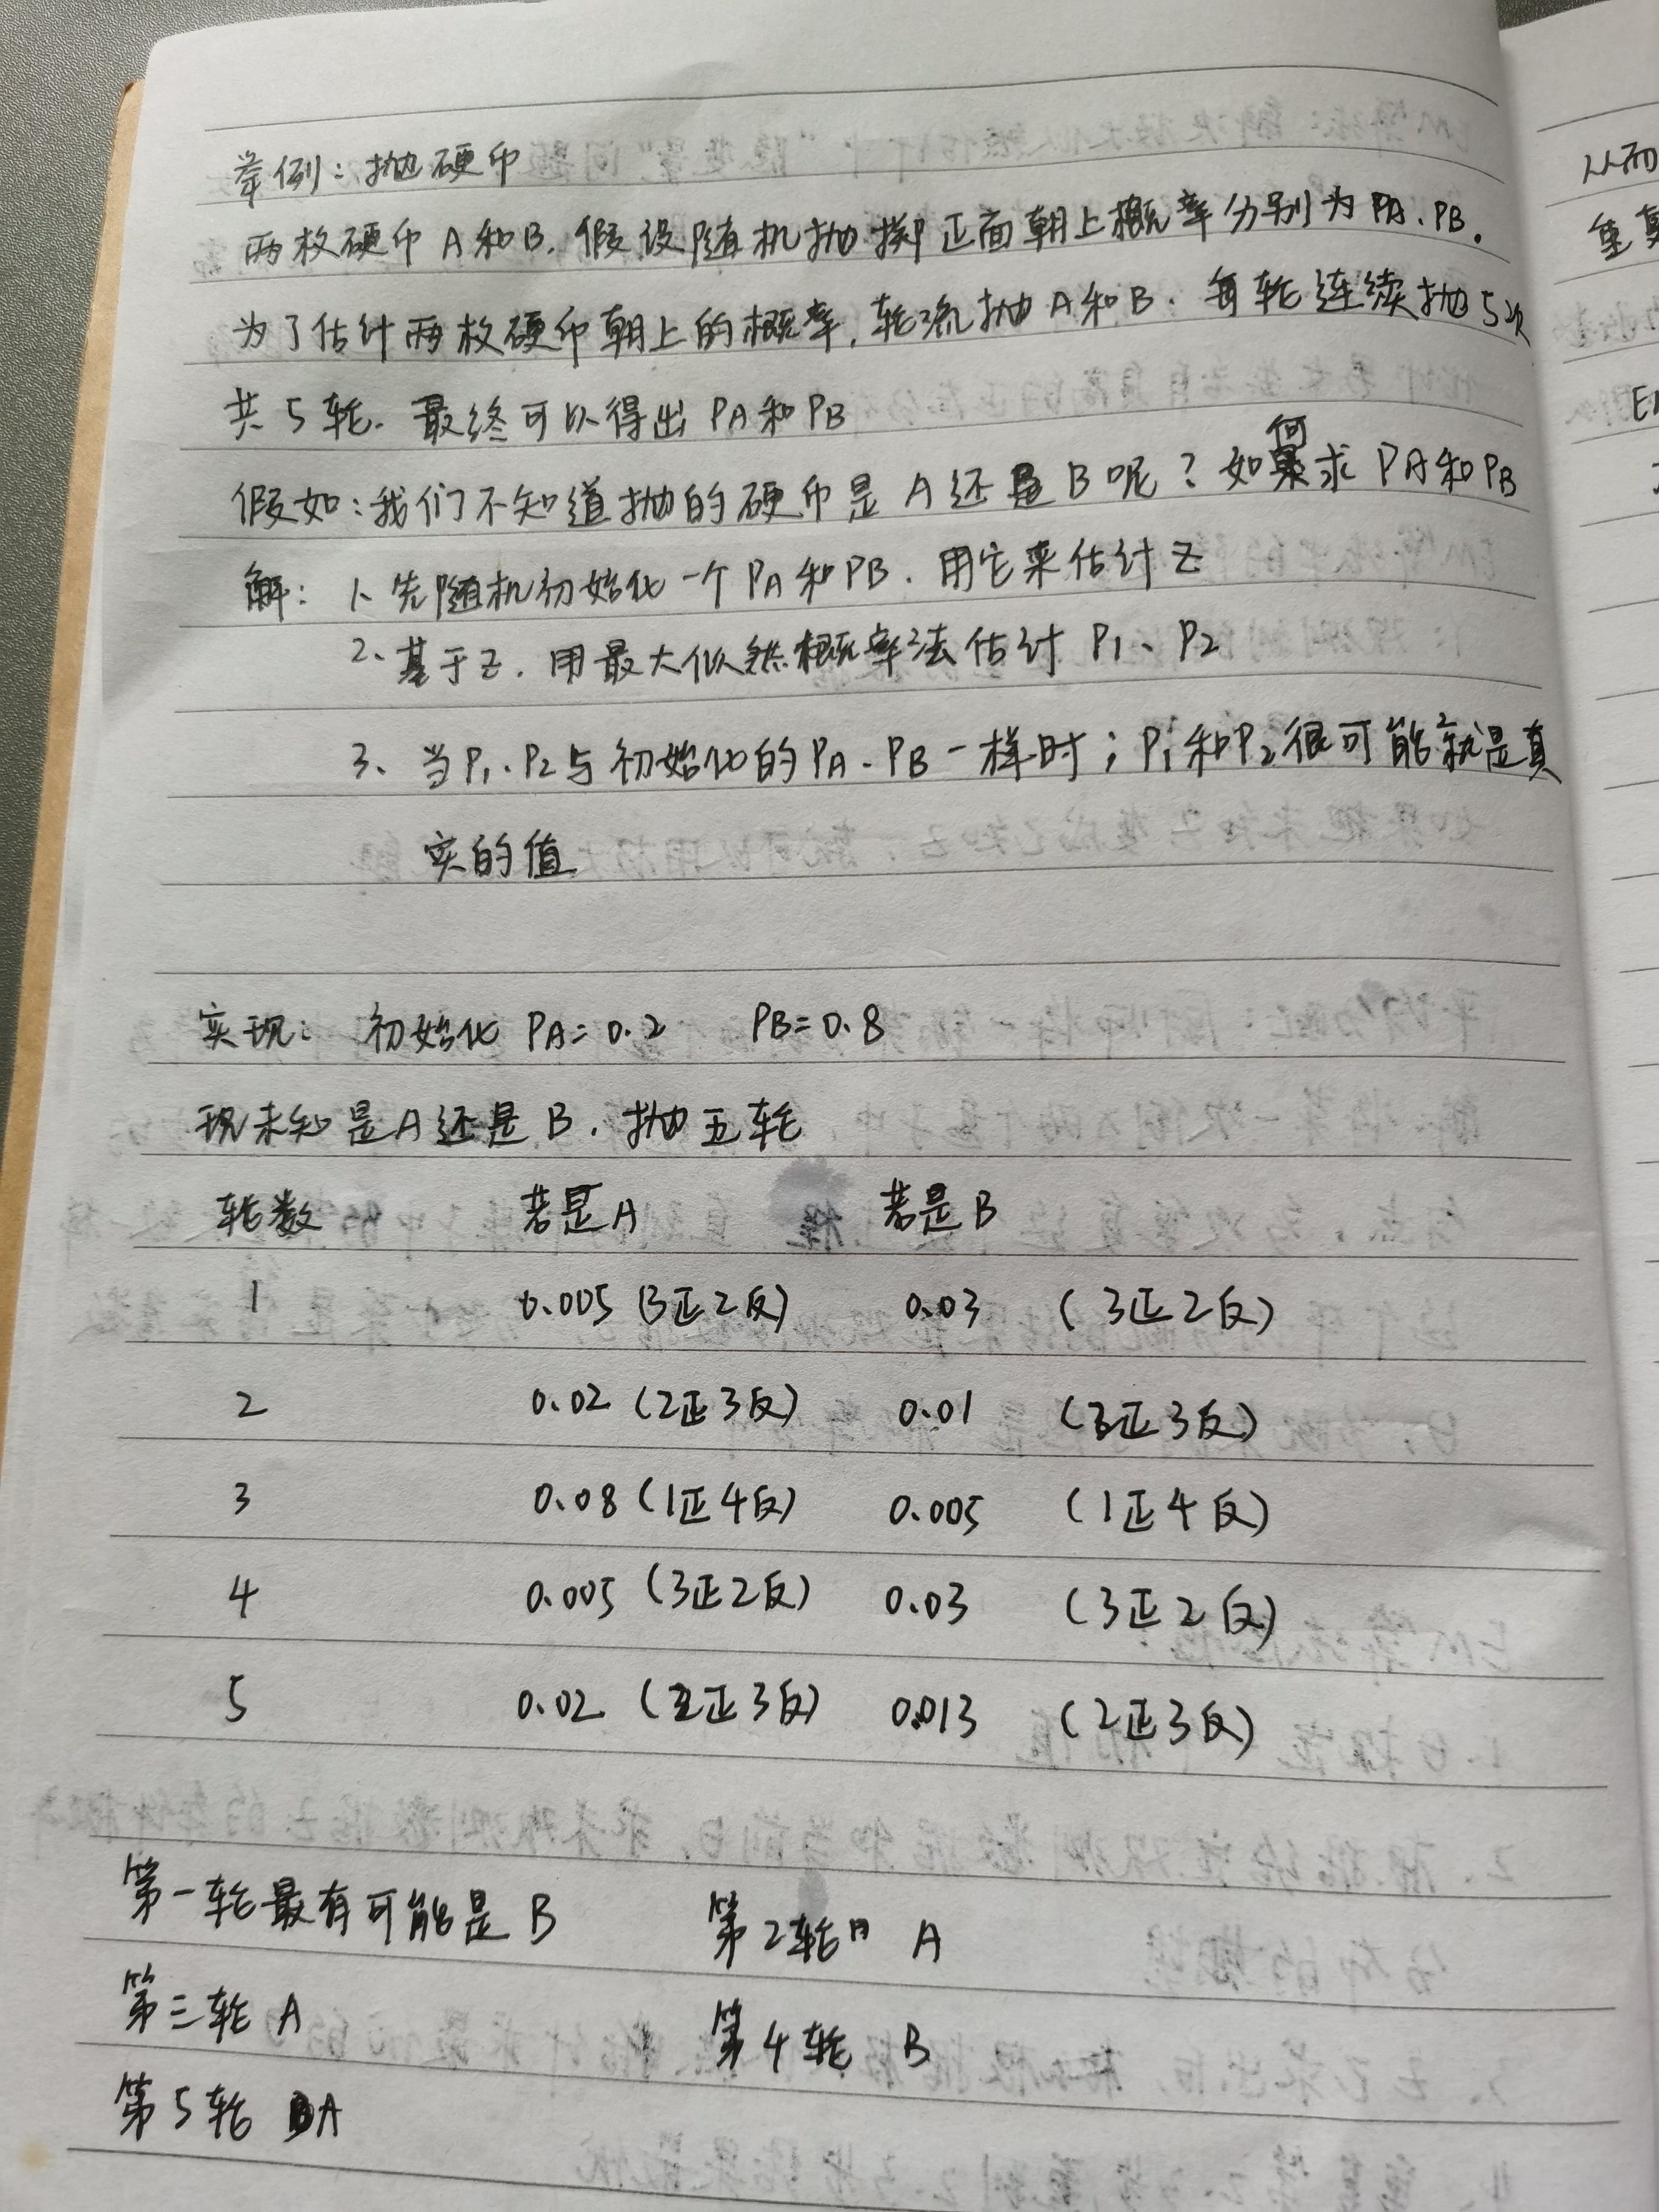 举例：抛硬币
两枚硬币A和B.假设随机抛掷正面朝上概率分别为PA、PB.
为了估计两枚硬币朝上的概率,轮流抛A和B、每轮连续抛5次
共5轮.最终可以得出PA和PB
假如：我们不知道抛的硬币是A还是B呢？如何求PA和PB
解：1、先随机初始化一个PA和PB.用它来估计Z
2、基于Z.用最大似然概率法估计P1、P2
3、当P1、P2与初始化的PA、PB一样时；P1和P2很可能就是真
实的值
实现：初始化 PA=0.2 PB=0.8
现未知是A还是B.抛五轮
轮数 若是A 若是B
1 0.005 (3正2反) 0.03 (3正2反)
2 0.02 (2正3反) 0.01 (3正3反)
3 0.08 (1正4反) 0.005 (1正4反)
4 0.005 (3正2反) 0.03 (3正2反)
5 0.02 (2正3反) 0.013 (2正3反)
第一轮最有可能是B 第2轮〃 A
第三轮 A 第4轮 B
第5轮 A
从而
重复